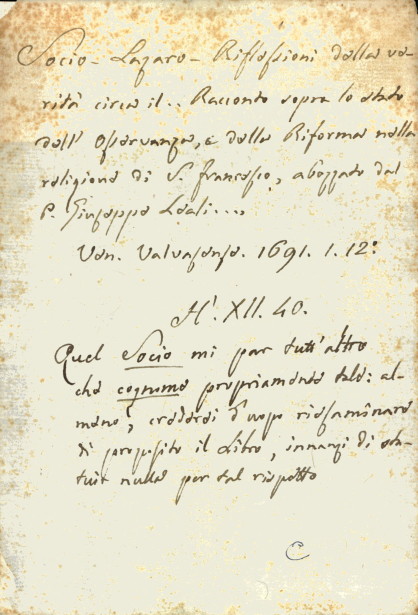 Socio - Lazaro - Riflessioni della ve-
rità circa il .. Racconto sopra lo stato
dell' Osservanza, e della Riforma nella
religione di S. Francesco, abozzato dal
P. Giuseppe Leali....
Ven. Valvasense. 1691. 1. 12.°
H. XII. 40.
Quel Socio mi par tutt' altro
che cognome propriamente tale: al-
meno, crederei d'uopo riesaminare
di proposito il Libro, innanzi di sta-
tuir nulla per tal rispetto
C